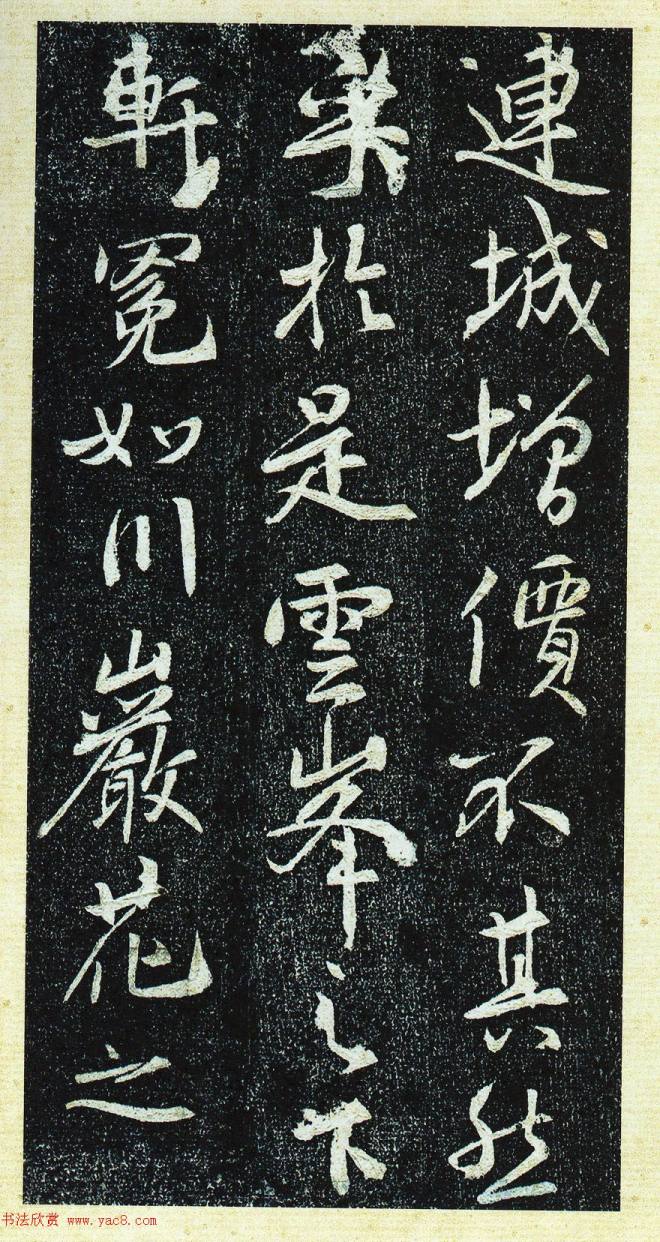 連城增價不其然
於是雲峯之下
軒冕如川巖花之
书法欣赏 www.yac8.com